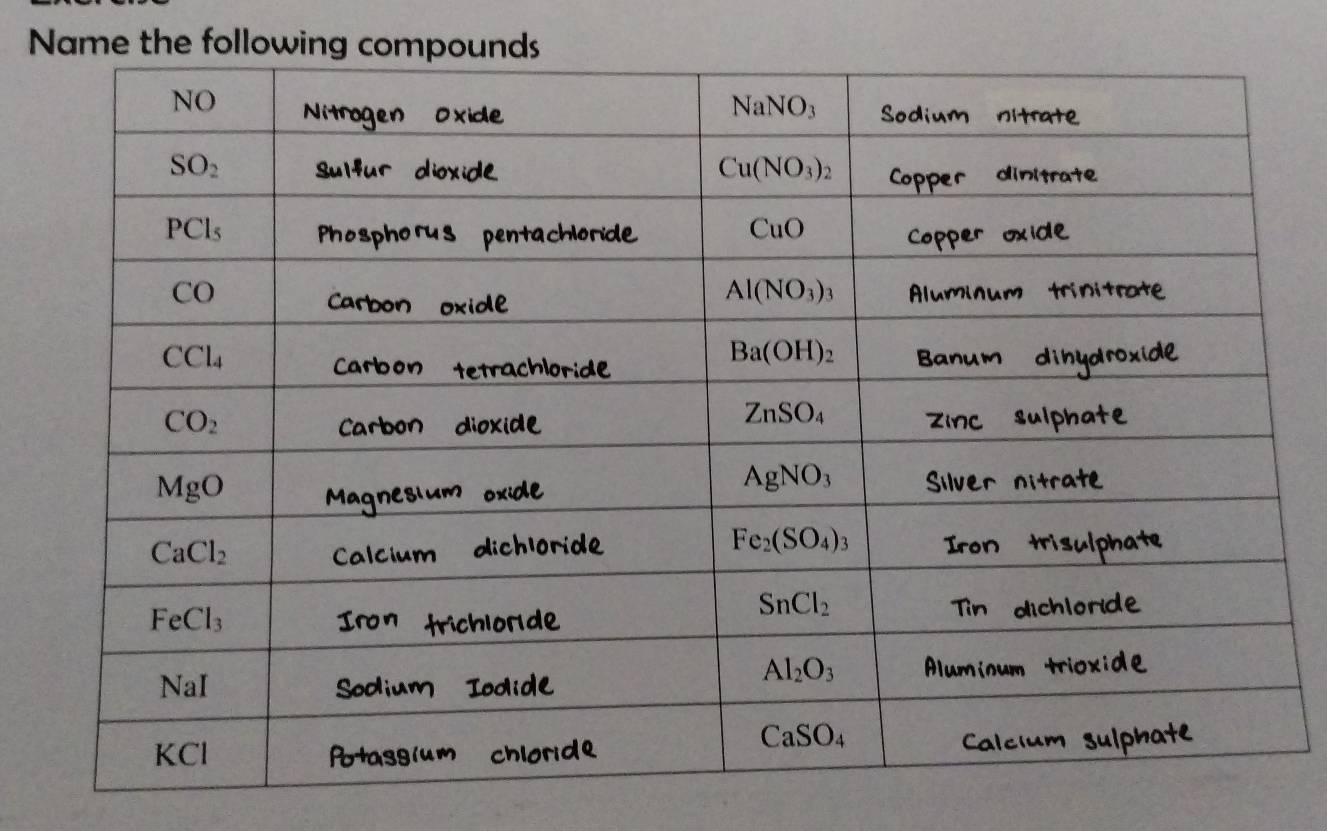 Name the following compounds
NO Nitrogen oxide NaNO₃ Sodium nitrate
SO₂ Sulfur dioxide Cu(NO₃)₂ Copper dinitrate
PCl₅ Phosphorus pentachloride CuO Copper oxide
CO Carbon oxide Al(NO₃)₃ Aluminum trinitrate
CCl₄ Carbon tetrachloride Ba(OH)₂ Barium dihydroxide
CO₂ Carbon dioxide ZnSO₄ Zinc sulphate
MgO Magnesium oxide AgNO₃ Silver nitrate
CaCl₂ Calcium dichloride Fe₂(SO₄)₃ Iron trisulphate
FeCl₃ Iron trichloride SnCl₂ Tin dichloride
NaI Sodium Iodide Al₂O₃ Aluminum trioxide
KCl Potassium chloride CaSO₄ Calcium sulphate